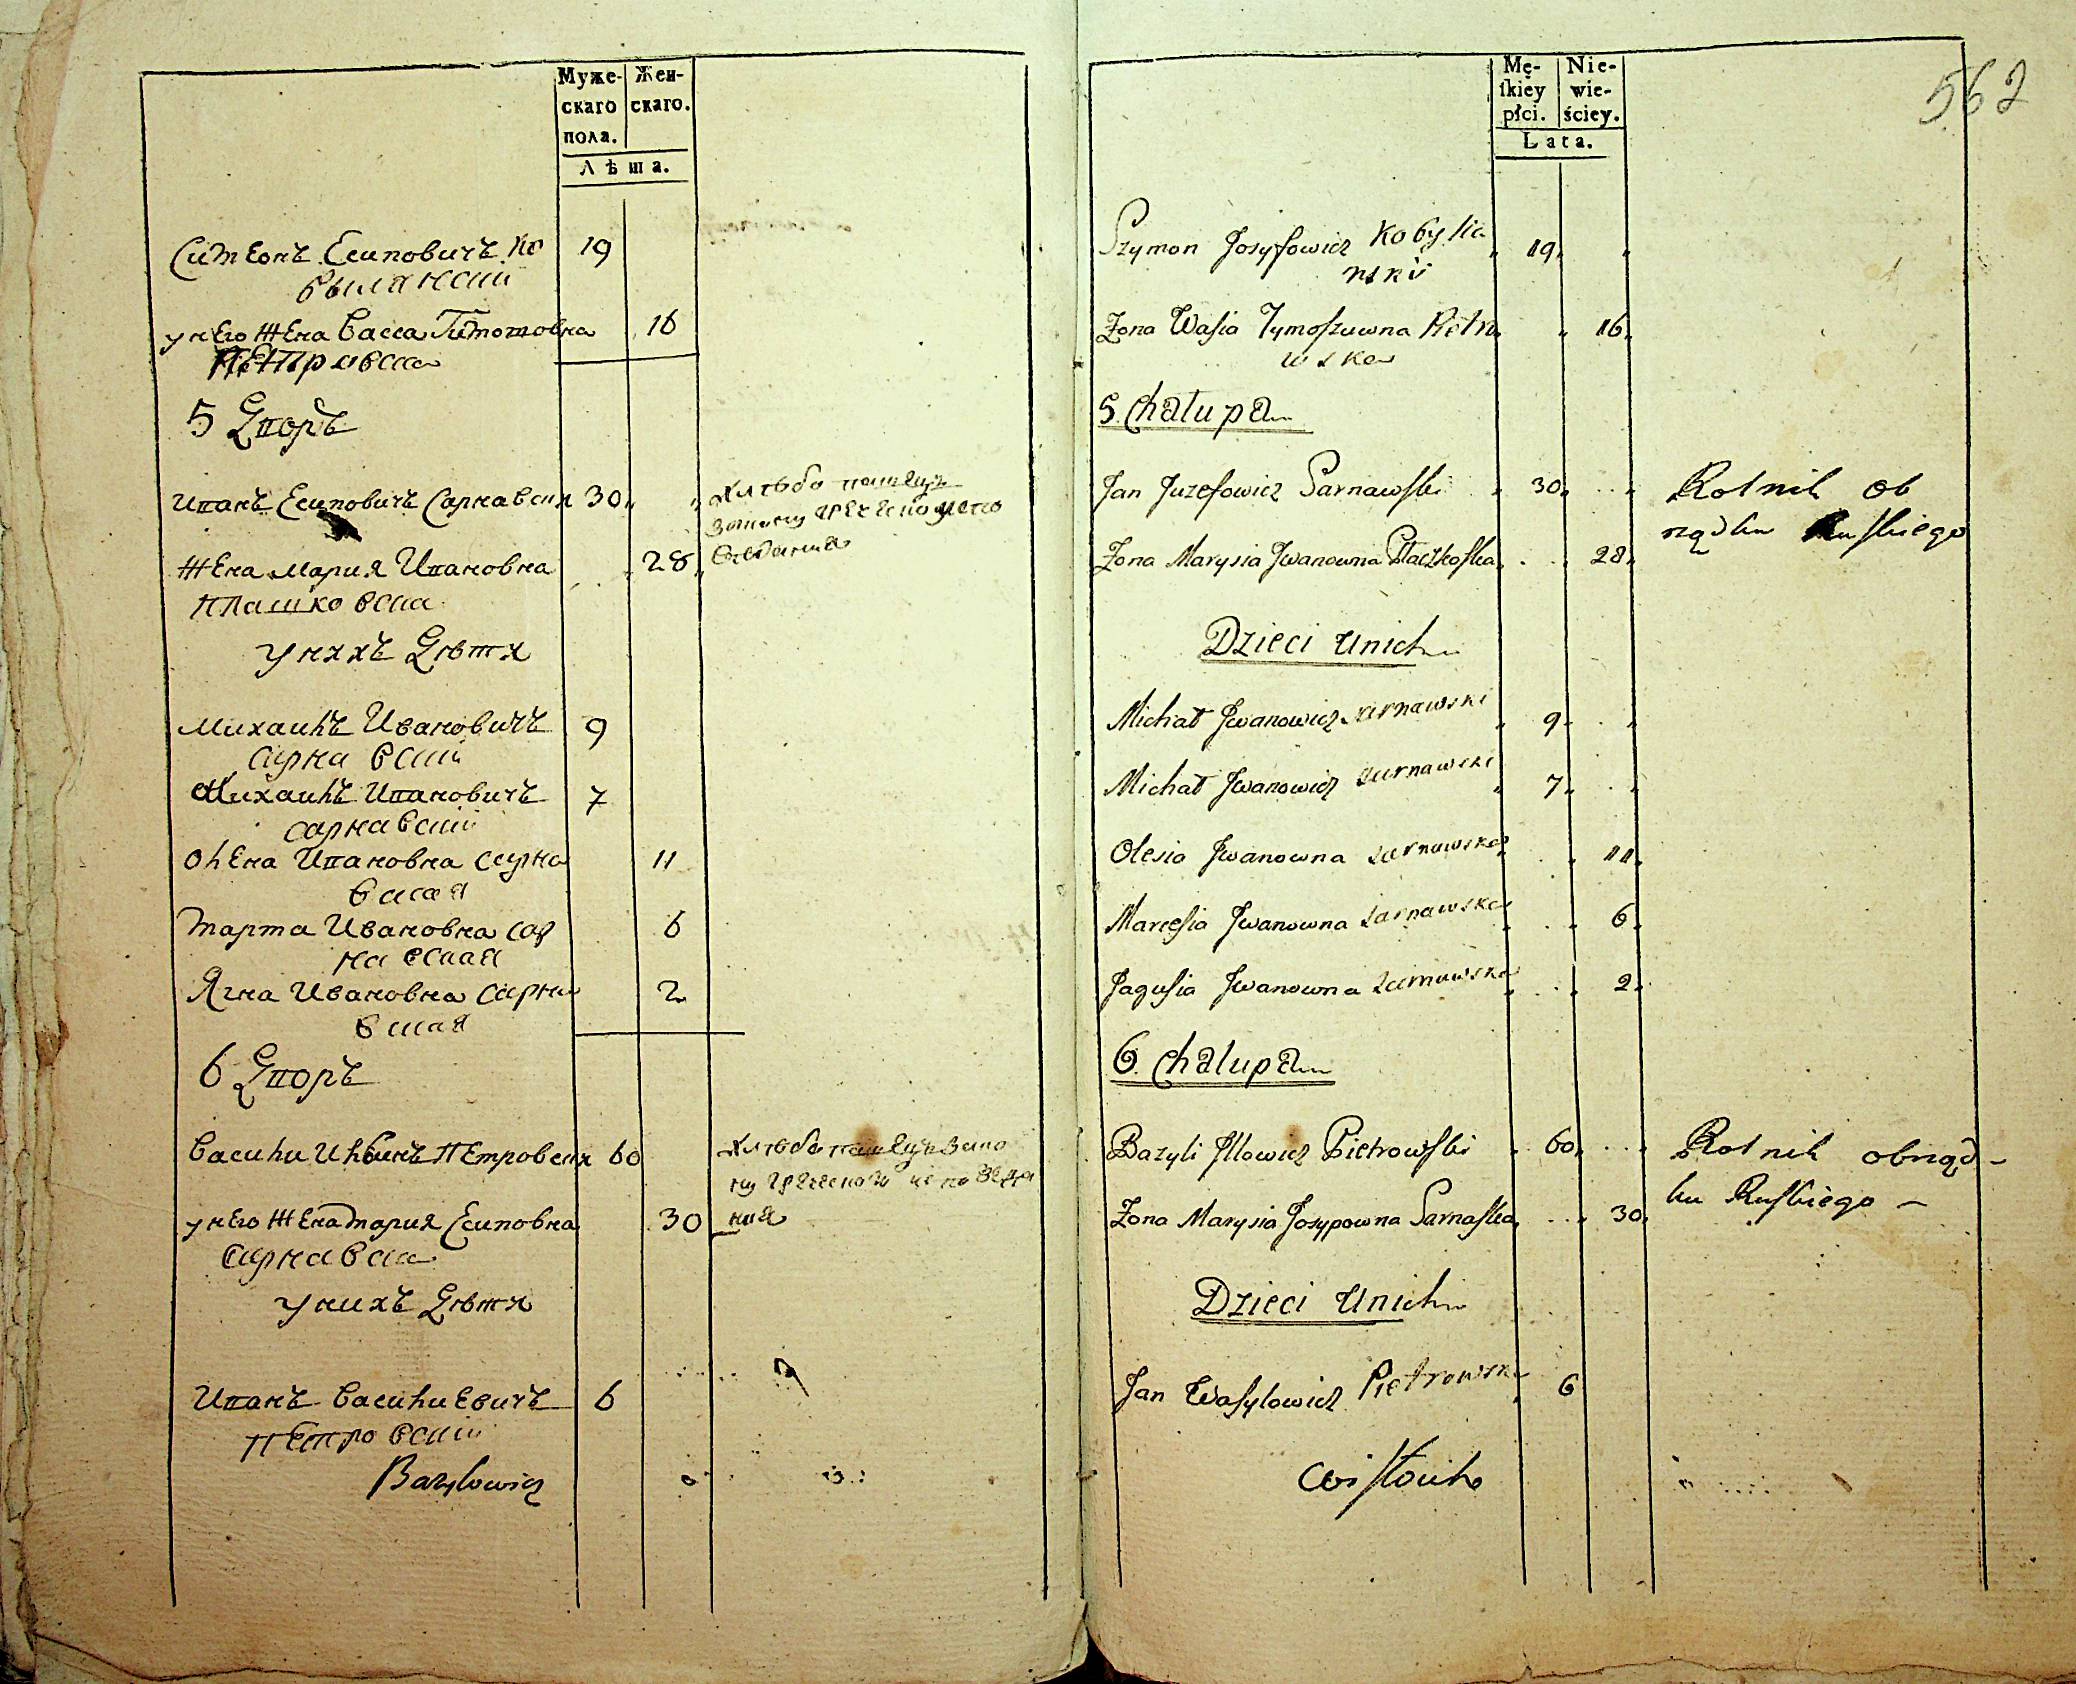 Муже-
скаго
пола.
Жен-
скаго.
Лѣта.
Симеонъ Есиповичъ Ко 19
былянский
у него жена Васса Тимошовна 16
Петровска
5 Дворъ
Иванъ Есиповичъ Сарнавски 30
Хлѣбопашецъ
Жена Мария Ивановна 28
Плашковска
У нихъ Дѣти
Михаилъ Ивановичъ 9
Сарнавский
Михаилъ Ивановичъ 7
Сарнавский
Олена Ивановна Сарна 11
вская
Марта Ивановна Сар 6
навская
Ягна Ивановна Сарна 2
вская
6 Дворъ
Васили Петровски 60
Хлѣбопашецъ
у него Жена Мария Есиповна 30
Сарнавска
У нихъ Дѣти
Иванъ Василиевичъ 6
Петровский
Bazylowicz
562
Mę-
skiey
płci.
Nie-
wie-
ściey.
Lata.
Szymon Josyfowicz Kobylia 19
nski
Zona Wasia Tymoszuwna Pietro 16
wska
5 Chałupa
Jan Juzefowicz Sarnawski 30 Rolnik ob
rządku Ruskiego
Zona Marysia Jwanowna Płaczkoska 28
Dzieci u nich
Michał Jwanowicz Sarnawski 9
Michał Jwanowicz Sarnawski 7
Olesia Jwanowna Sarnawska 11
Marcesia Jwanowna Sarnawska 6
Jagusia Jwanowna Sarnawska 2
6 Chalupa
Bazyli Jllowicz Pietrowski 60 Rolnik obrząd-
ku Ruskiego
Zona Marysia Josypowna Sarnaska 30
Dzieci u nich
Jan Wasylowicz Pietrowski 6